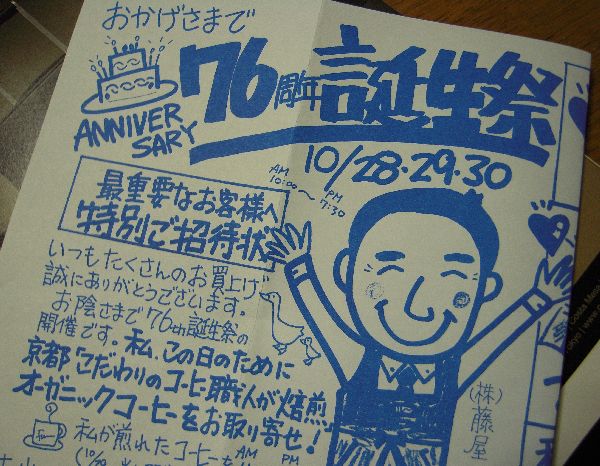 おかげさまで
76周年誕生祭
ANNIVER
SARY
10/28・29・30
AM 10:00～PM 7:30
最重要なお客様へ
特別ご招待状
いつもたくさんのお買上げ
誠にありがとうございます。
お陰さまで76th誕生祭の
開催です。私、この日のために
京都こだわりのコーヒー職人が焙煎
オーガニックコーヒーをお取り寄せ!
私が煎れたコーヒーを
AM PM
(株)藤屋